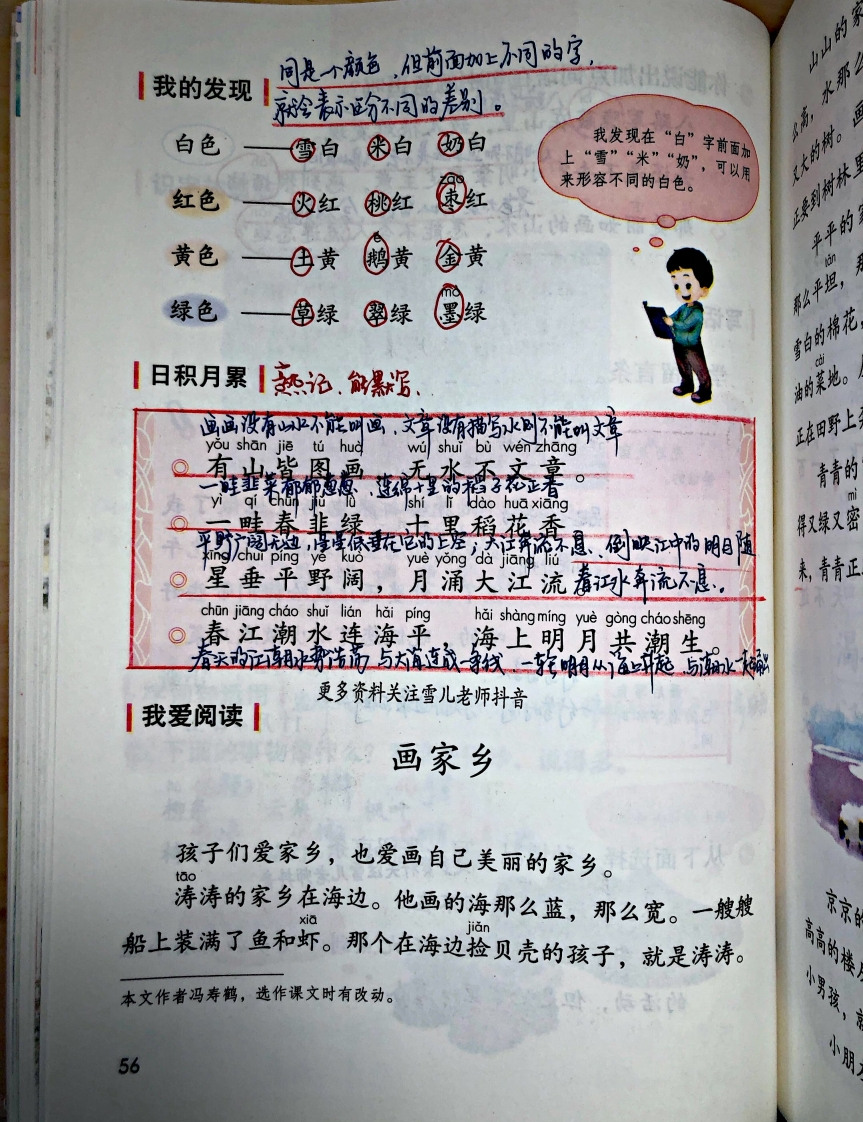 同是一个颜色，但前面加上不同的字，
我的发现
就会表示区分不同的差别。
白色 ——雪白 米白 奶白
我发现在“白”字前面加
上“雪”“米”“奶”，可以用
来形容不同的白色。
zǎo
红色 ——火红 桃红 枣红
é
黄色 ——土黄 鹅黄 金黄
mò
绿色 ——草绿 翠绿 墨绿
日积月累
熟记，能默写、
画画没有山水不能叫画，文章没有描写水则不能叫文章
yǒu shān jiē tú huà wú shuǐ bù wén zhāng
◎ 有山皆图画 无水不文章。
一畦韭菜郁郁葱葱，连绵十里的稻子花正香
yì qí chūn jiǔ lǜ shí lǐ dào huā xiāng
◎ 一畦春韭绿 十里稻花香
平野广阔无边，星星低垂在它的上空；大江奔流不息、倒映江中的明月随
xīng chuí píng yě kuò yuè yǒng dà jiāng liú
◎ 星垂平野阔，月涌大江流
着江水奔流不息。
chūn jiāng cháo shuǐ lián hǎi píng hǎi shàng míng yuè gòng cháo shēng
◎ 春江潮水连海平，海上明月共潮生。
春天的江潮水势浩荡 与大海连成一条线，一轮明月从海上升起 与潮水一起涌出
更多资料关注雪儿老师抖音
我爱阅读
画家乡
孩子们爱家乡，也爱画自己美丽的家乡。
tāo
涛涛的家乡在海边。他画的海那么蓝，那么宽。一艘艘
xiā jiǎn
船上装满了鱼和虾。那个在海边捡贝壳的孩子，就是涛涛。
本文作者冯寿鹤，选作课文时有改动。
56
山山的家
么高，水那么
又大的树。画
正要到树林里
平平的家
tǎn
那么平坦，那
雪白的棉花，
cài
油的菜地。
正在田野上
青青的
mì
得又绿又密
来，青青正
京京的
高高的楼
小男孩，就
小朋